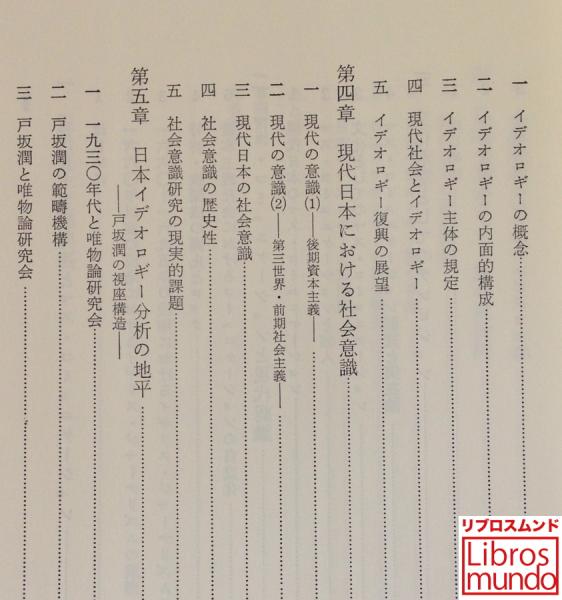 一 イデオロギーの概念
二 イデオロギーの内面的構成
三 イデオロギー主体の規定
四 現代社会とイデオロギー
五 イデオロギー復興の展望
第四章 現代日本における社会意識
一 現代の意識(1)――後期資本主義――
二 現代の意識(2)――第三世界・前期社会主義――
三 現代日本の社会意識
四 社会意識の歴史性
五 社会意識研究の現実的課題
第五章 日本イデオロギー分析の地平
――戸坂潤の視座構造――
一 一九三〇年代と唯物論研究会
二 戸坂潤の範疇機構
三 戸坂潤と唯物論研究会
リブロスムンド
Libros
mundo